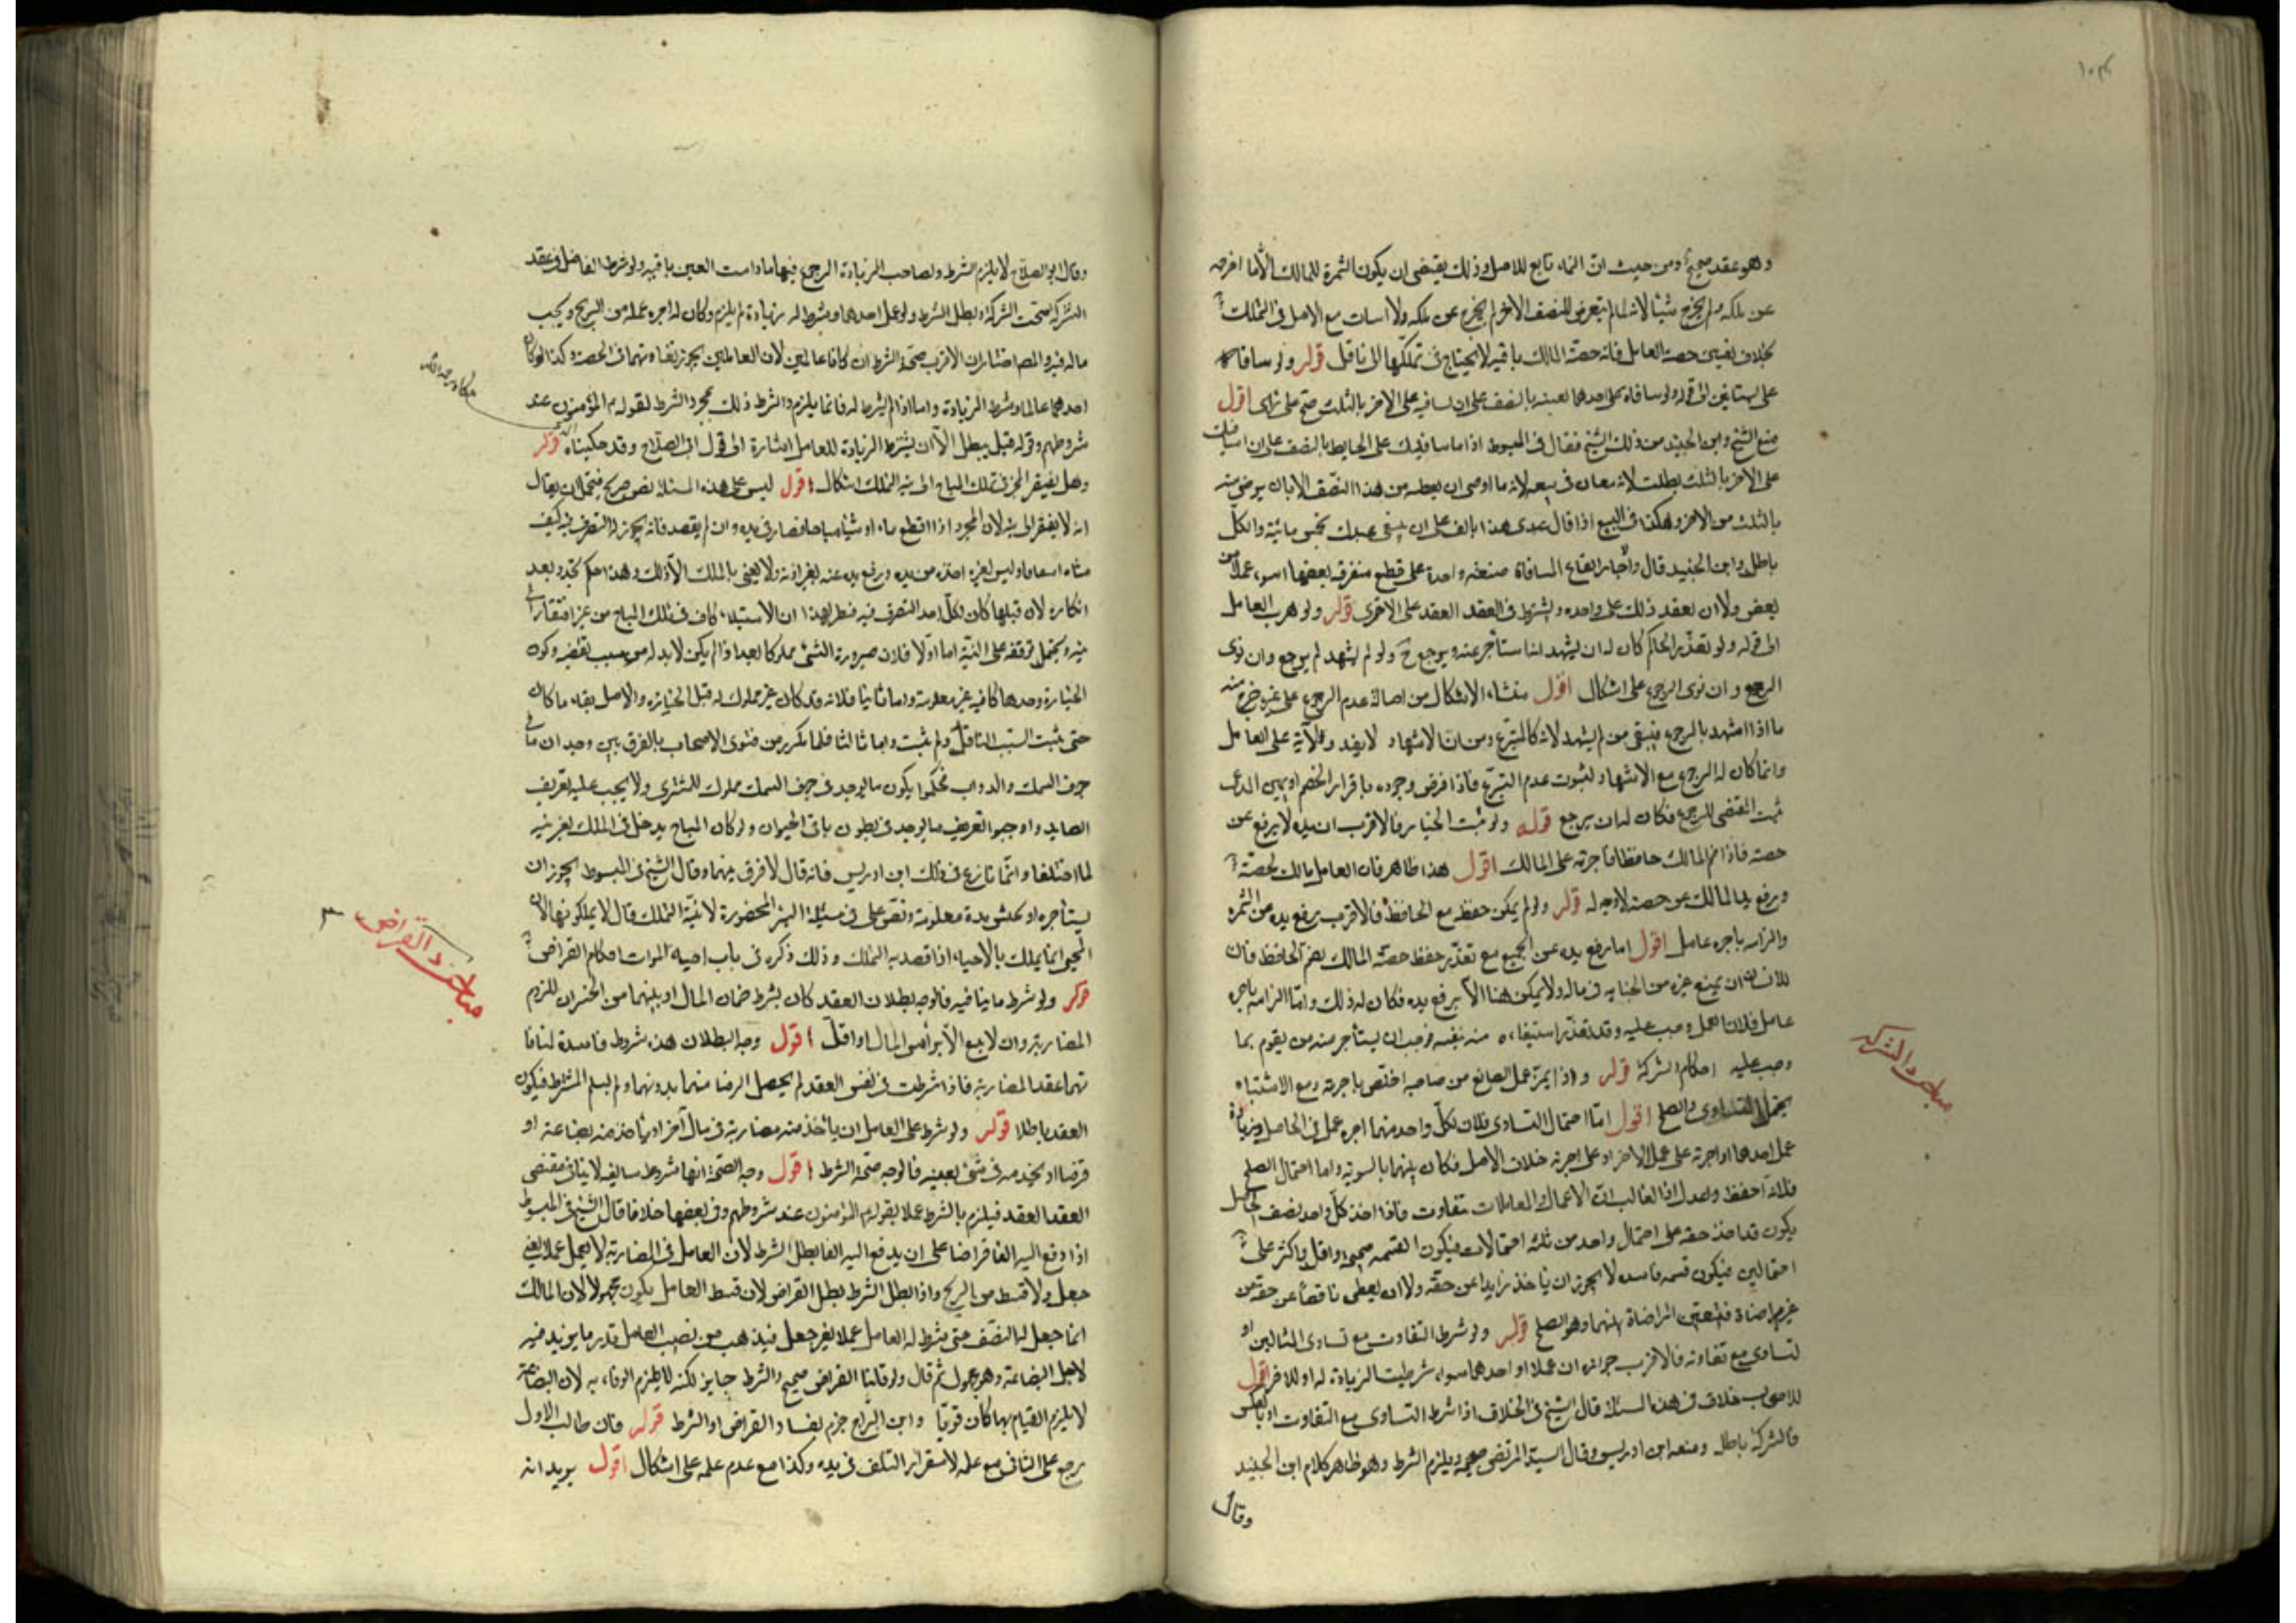 وهو عقد صحيح ومن حيث ان النماء تابع للاصل وذلك يقتضى ان يكون الثمرة للمالك الا ما اخرجه
عن ملكه ولم يخرج شيئا لانه لما لم يتعرض للنصف الاخر لم يخرج عن ملكه ولا اسات مع الاصل فى التملك
بخلاف تعيين حصة العامل فانه حصة المالك باقيه لا يحتاج فى تملكها الى ناقل قوله ولو ساقاه
على بستانين الى قوله ولو ساقاه على احدهما بعينه بالنصف على ان ساقيه على الاخر بالثلث صح على راى اقول
منع الشيخ وابن الجنيد من ذلك الشيخ فقال فى المبسوط اذا ما ساقيتك على الحايط بالنصف على ان اساقيك
على الاخر بالثلث بطلت لانه بيعان فى بيعه لانه ما اوصى ان يعطيه من هذا النصف الا بان يرضى منه
بالثلث من الاخر وهكذا فى البيع اذا قال عبدى هذا بالف على ان عبدك بخمس مائية والكل
باطل وابن الجنيد قال ولا اختار ايقاع المساقاة صفقة واحدة على قطع متفرقه بعضها اسوء عملا من
بعض ولا ان يعقد ذلك على واحده ويشترط فى العقد العقد على الاخرى قوله ولو هرب العامل
الى قوله ولو تعذر الحاكم كان له ان يشهد انه استاجر عنه ويرجع ح ولو لم يشهد لم يرجع وان نوى
الرجوع وان نوى الرجوع على اشكال اقول منشاء الاشكال من اصالة عدم الرجوع على غيره خرج منه
ما اذا اشهد بالرجوع فيبقى من لم يشهد لانه كالمتبرع ومن ان الاشهاد لا يفيد ولاية على العامل
وانما كان له الرجوع مع الاشهاد لثبوت عدم التبرع فاذا فرض وجوده باقرار الخصم او يمين المدعى
ثبت المقتضى للرجوع فكان له ان يرجع قوله ولو ثبت الخيانه فالاقرب ان يده لا يرفع عن
حصته فاذا ضم المالك حافظا فاجرته على المالك اقول هذا ظاهر فان العامل مالك لحصته
ورفع يد المالك عن حصته لا وجه له قوله ولو لم يمكن حفظه مع الحافظ فالاقرب رفع يده من الثمرة
والزامه باجرة عامل اقول اما رفع يده عن الجميع مع تعذر حفظ حصة المالك بضم الحافظ فان
للانسان ان يمنع غيره من الجنايه فى ماله ولا يمكن هنا الا برفع يده فكان له ذلك واما الزامه باجره
عامل فلان العمل وجب عليه وقد تعذر استيفاءه منه بنفسه فوجب ان يستاجر منه من يقوم بما
وجب عليه احكام الشركة قوله واذا تميز عمل الصانع من صاحبه اختص باجرته ومع الاشتباه
يحتمل التساوى والصلح اقول اما احتمال التساوى فلان لكل واحد منهما اجره عمل فى الحاصل وزيادة
عمل احدهما او اجرته على عمل الاخر او على اجرته خلاف الاصل فكان بينهما بالسويه واما احتمال الصلح
فلانه احفظ واعدل اذ الغالب ان الاعمال والمعاملات تتفاوت فاذا اخذ كل واحد نصف الحاصل
يكون قد اخذ حقه على احتمال واحد من ثلثه احتمالات فيكون القسمه صحيحه او اقل او اكثر على
احتمالين فيكون قسمه فاسده لا يجوز ان ياخذ زايدا عن حقه ولا ان يعطى ناقصا عن حقه من
غير مراضاة فتعين المراضاة بينهما وهو الصلح قوله ولو شرط التفاوت مع تساوى المالين او
تساوى مع تفاوته فالاقرب جوازه ان عملا او احدهما سواء شرطت الزيادة له او للاخر اقول
للاصحاب خلاف فى هذه المسئلة قال الشيخ فى الخلاف اذا شرط التساوى مع التفاوت او بالعكس
فالشركة باطله ومنعه ابن ادريس وقال السيد المرتضى صحيحه ويلزم الشرط وهو ظاهر كلام ابن الجنيد
وقال
مباحث الشركة
وقال ابو الصلاح لا يلزم الشرط ولصاحب الزيادة الرجوع فيها ما دامت العين باقيه ولو شرط الفاضل فى عقد
الشركه صحت الشركة وبطل الشرط ولو عمل احدهما وشرط له زيادة لم يلزم وكان له اجره عمله من الربح وبحسب
ماله فيه والمصنف اختار ان الاقرب صحة الشرط ان كانا عاملين لان العاملين يجوز تفاوتهما فى الحصه وكذا لو كان
احدهما عاملا وشرط الزيادة واما اذا لم يشرط له فانما يلزم والشرط ذلك مجرد الشرط لقوله م المؤمنون عند
شروطهم وقوله قيل يبطل الا ان يشترط الزيادة للعامل اشارة الى قول ابى الصلاح وقد حكيناه قوله
وهل يفتقر المحرز فى تملك المباح الى نيه التملك اشكال اقول ليس على هذه المسئلة نص صريح فيحتمل ان يقال
انه لا يفتقر الى نيه لان المجرد اذا اقتطع ماء او شيئا مباحا فصار فى يده وان لم يقصد فانه يجوز له التصرف فيه كيف
شاء وليس لغيره اخذه من يده ورفع يده عنه بغير اذنه ولا يعنى بالملك الا ذلك وهذا حكم تجدد بعد
ان كان لان قبلها كان لكل احد التصرف فيه فظهر بهذا ان الاستيلاء كاف فى تملك المباح من غير افتقار الى
نيه ويحتمل توقفه على النية اما اولا فلان صيرورة الشئ مملوكا بعد اذ لم يكن لابد له من سبب يقتضيه وكون
الحيازة وحدها كافيه غير معلومة واما ثانيا فلانه قد كان غير مملوك له قبل الحيازة والاصل بقاء ما كان
حتى يثبت السبب الناقل ولم يثبت واما ثالثا فلما تكرر من فتوى الاصحاب بالفرق بين وجدان ما فى
جوف السمك والدواب فحكموا بكون ما يوجد فى جوف السمك مملوك للمشترى ولا يجب عليه تعريف
الصايد واوجبوا التعريف مما يوجد فى بطون باقى الحيوان ولو كان المباح يدخل فى الملك بغير نيه
لما اختلفا وانما نازع فى ذلك ابن ادريس فانه قال لا فرق بينهما وقال الشيخ فى المبسوط يجوز ان
يستاجره مدة معلومة ونص على فى مسئلة البئر المحفورة لا بنية التملك فقال لا يملكونها لان
المحيى انما يملك بالاحياء اذا قصد به التملك وذلك ذكره فى باب احياء الموات احكام القراض
قوله ولو شرط ما ينافيه فالوجه بطلان العقد كان يشرط ضمان المال او بينهما من الخسران للزوم
المضاربة وان لا يبيع الا براس المال او اقل اقول وجه البطلان هذه شروط فاسدة لمنافا
تها عقد المضاربة فاذا شرطت فى نفس العقد لم يحصل الرضا منهما بدونها ولم يسلم المشترط فيكون
العقد باطلا قوله ولو شرط على العامل ان ياخذ منه مضاربة فى مال آخر او ياخذ منه بضاعة او
قرضا او يخدمه فى شئ بعينه فالوجه صحة الشرط اقول وجه الصحة انها شروط سايغه لا ينافى مقتضى
العقد العقد فيلزم بالشرط عملا بقوله م المؤمنون عند شروطهم وفى بعضها خلاف قال الشيخ فى المبسوط
اذا دفع اليه الفا قراضا على ان يدفع اليه الفا بطل الشرط لان العامل فى المضاربة لا يعمل عملا بغير
جعل ولا قسط من الربح واذا بطل الشرط بطل القراض لان قسط العامل يكون مجهولا لان المالك
انما جعل له النصف حتى شرط له العامل عملا بغير جعل فيذهب من نصيب العامل قدر ما يزيد فيه
لاجل البضاعة وهو مجهول ثم قال ولو قلنا القراض صحيح والشرط جايز لكنه لا يلزم الوفاء به لان البضاعة
لا يلزم القيام بها كان قويا وابن البراج جزم بفساد القراض والشرط قوله فان طالب الاول
رجع على الثانى مع علمه لاستقرار التلف فى يده وكذا مع عدم علمه على اشكال اقول يريد انه
مباحث القراض